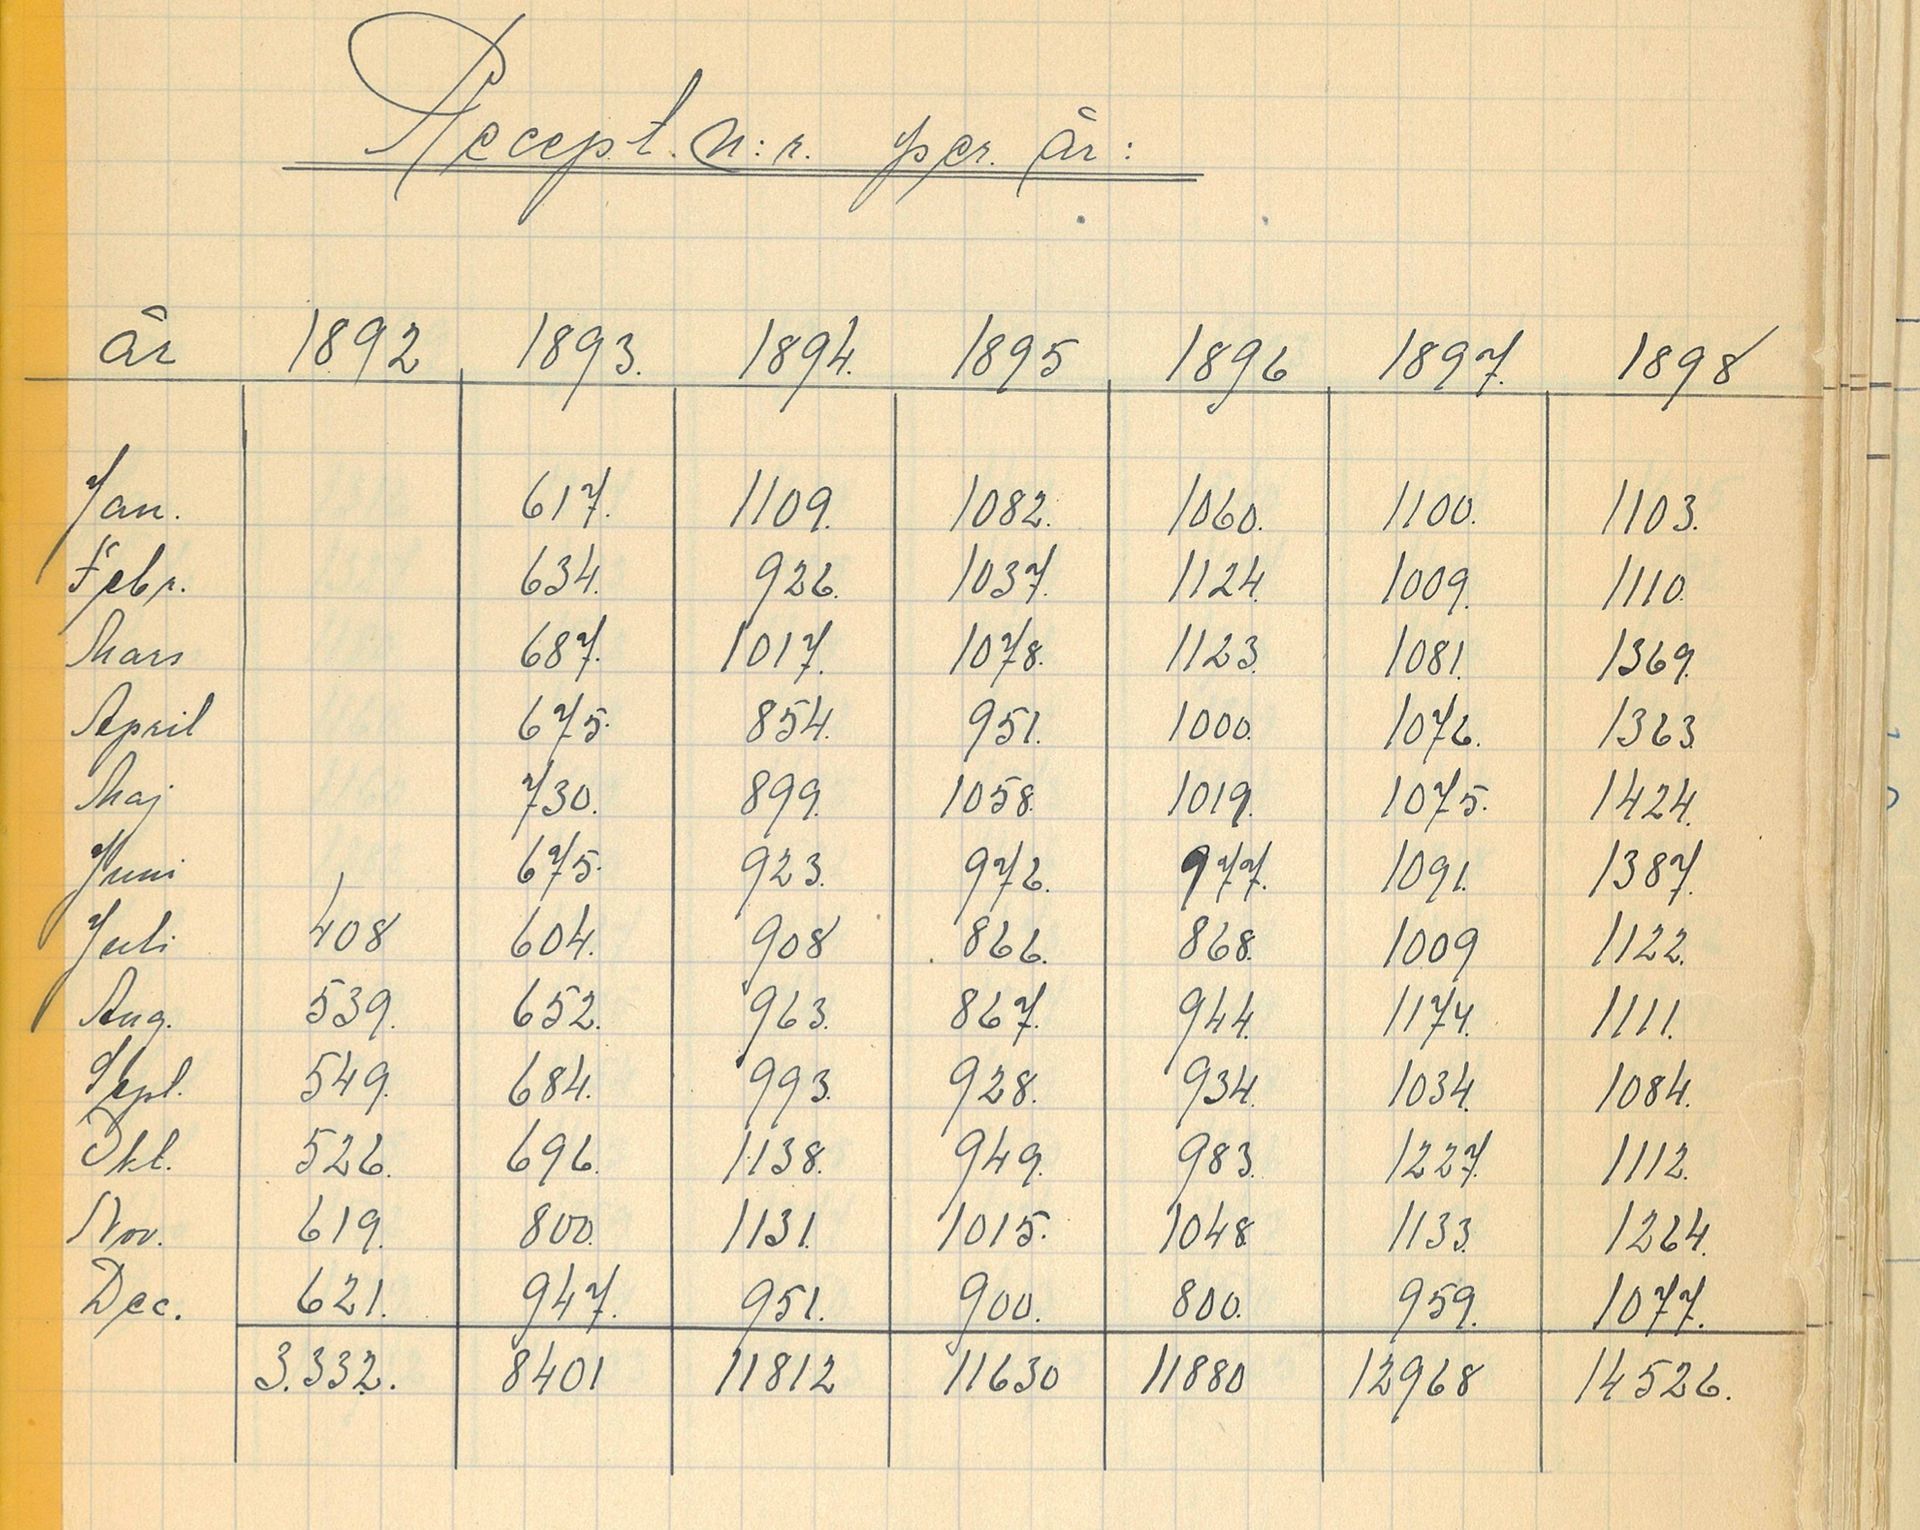 Recept. n:r. per. år:
år 1892 1893. 1894. 1895 1896 1897. 1898
Jan. 617. 1109. 1082. 1060. 1100. 1103.
Febr. 634. 926. 1037. 1124. 1009. 1110.
Mars 687. 1017. 1078. 1123. 1081. 1369.
April 675. 854. 951. 1000. 1076. 1363.
Maj 730. 899. 1058. 1019. 1075. 1424.
Juni 675. 923. 976. 977. 1091. 1387.
Juli 408 604. 908 866. 868. 1009 1122.
Aug. 539. 652. 963. 867. 944. 1174. 1111.
Sept. 549. 684. 993. 928. 934. 1034. 1084.
Okt. 526. 696. 1138. 949. 983. 1227. 1112.
Nov. 619. 800. 1131. 1015. 1048. 1133. 1264.
Dec. 621. 947. 951. 900. 800. 959. 1077.
3.332. 8401 11812 11630 11880 12968 14526.